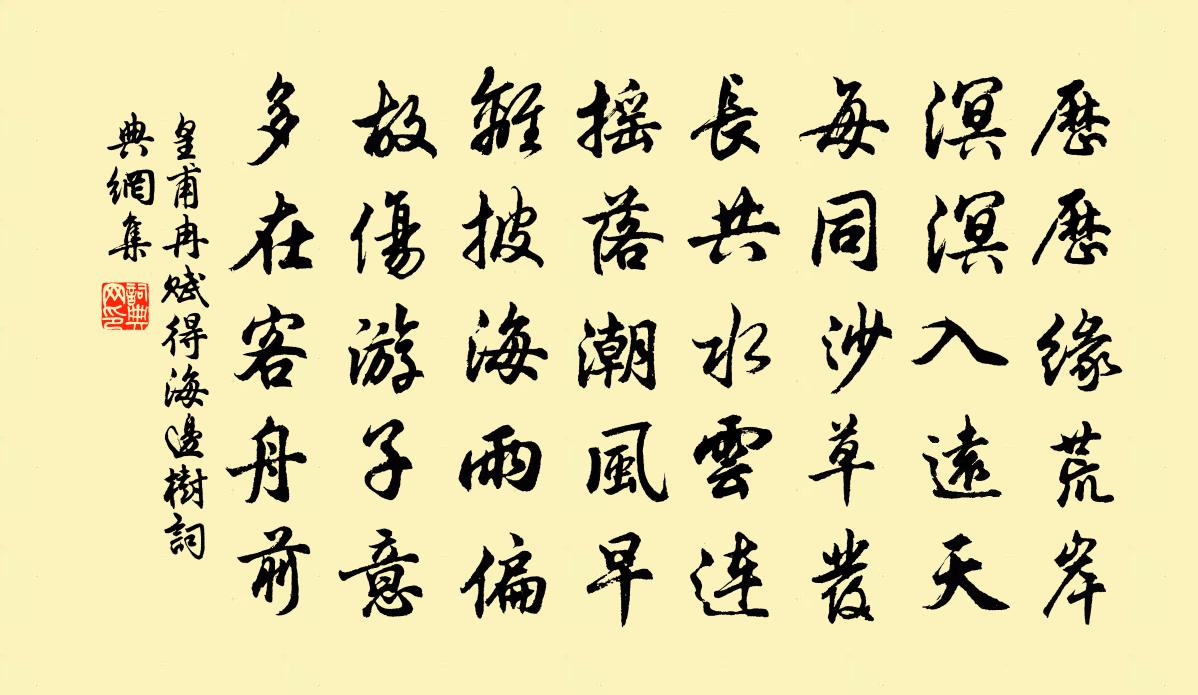 歷歷緣荒岸
溟溟入遠天
每同沙草發
長共水雲連
搖落潮風早
離披海雨偏
故傷游子意
多在客舟前
皇甫冉賦得海邊樹詞
典網集
詞典網印